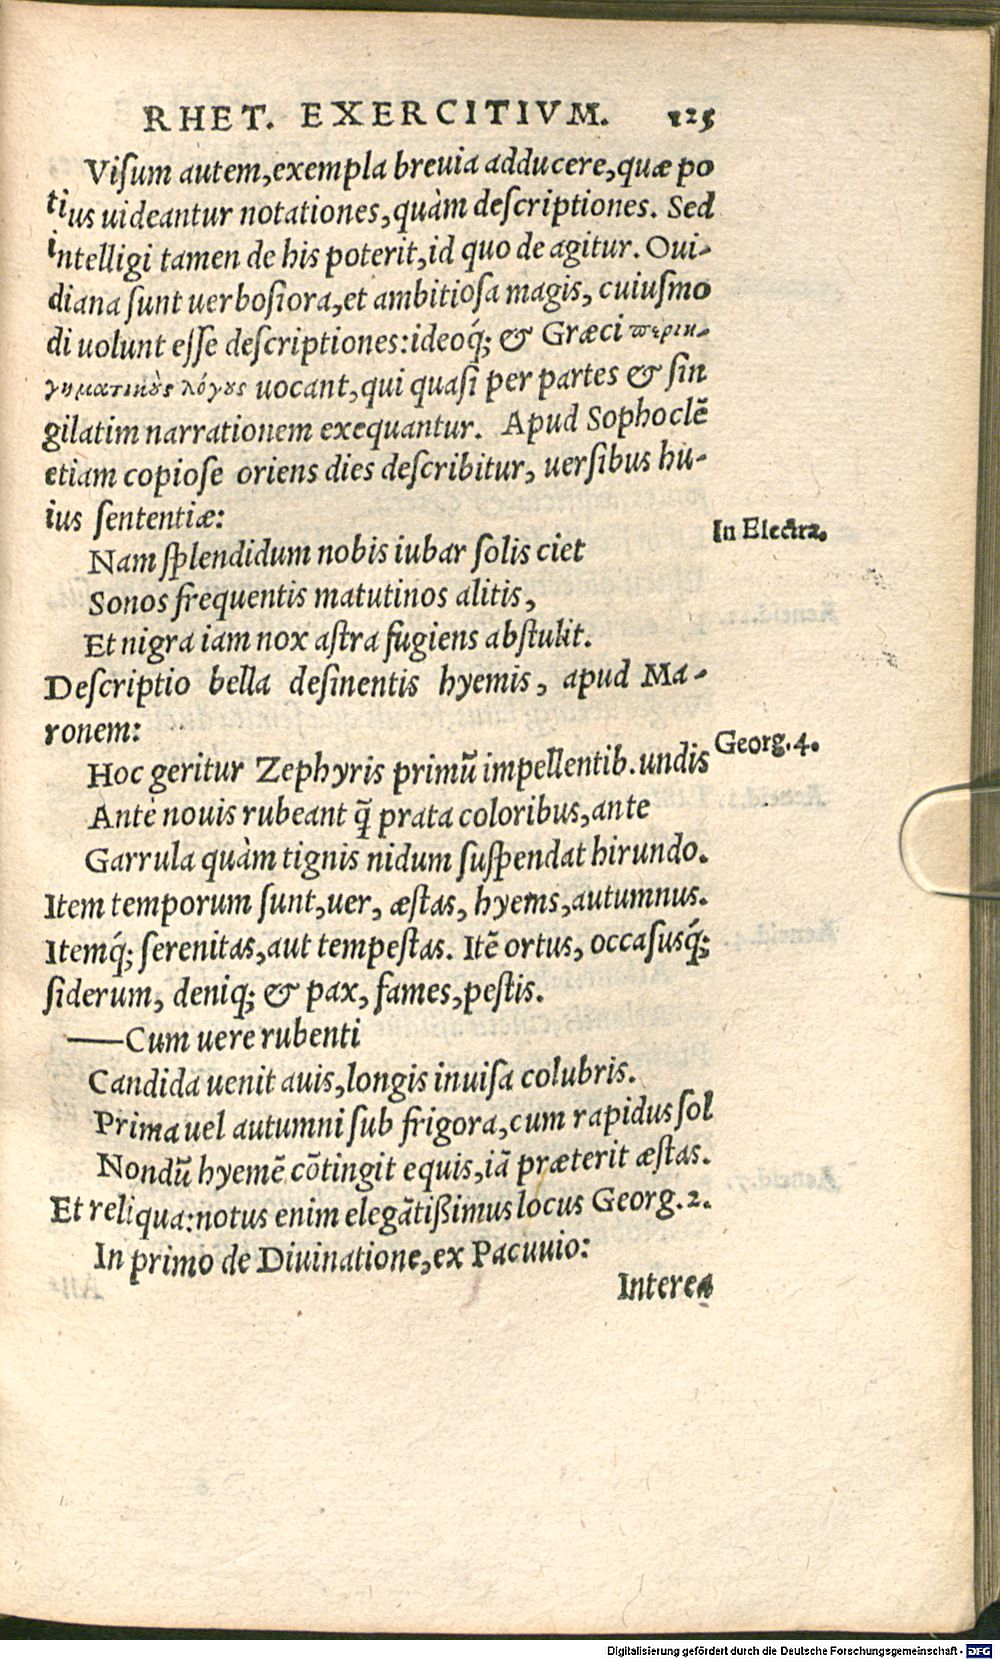 RHET. EXERCITIVM. 125
Viſum autem, exempla breuia adducere, quæ po
tius uideantur notationes, quàm deſcriptiones. Sed
intelligi tamen de his poterit, id quo de agitur. Oui-
diana ſunt uerboſiora, et ambitioſa magis, cuiuſmo
di uolunt eſſe deſcriptiones: ideoq́; & Græci περιη-
γηματικοὺς λόγους uocant, qui quaſi per partes & ſin
gilatim narrationem exequantur. Apud Sophoclē
etiam copioſe oriens dies deſcribitur, uerſibus hu-
ius ſententiæ:
In Electra.
Nam ſplendidum nobis iubar ſolis ciet
Sonos frequentis matutinos alitis,
Et nigra iam nox aſtra fugiens abſtulit.
Deſcriptio bella deſinentis hyemis, apud Ma-
ronem:
Georg. 4.
Hoc geritur Zephyris primū impellentib. undis
Ante nouis rubeant q̄ prata coloribus, ante
Garrula quàm tignis nidum ſuſpendat hirundo.
Item temporum ſunt, uer, æſtas, hyems, autumnus.
Itemq́; ſerenitas, aut tempeſtas. Itē ortus, occaſusq́;
ſiderum, deniq; & pax, fames, peſtis.
—Cum uere rubenti
Candida uenit auis, longis inuiſa colubris.
Prima uel autumni ſub frigora, cum rapidus ſol
Nondū hyemē cōtingit equis, iā præterit æſtas.
Et reliqua: notus enim elegātißimus locus Georg. 2.
In primo de Diuinatione, ex Pacuuio:
Interea
Digitalisierung gefördert durch die Deutsche Forschungsgemeinschaft - DFG